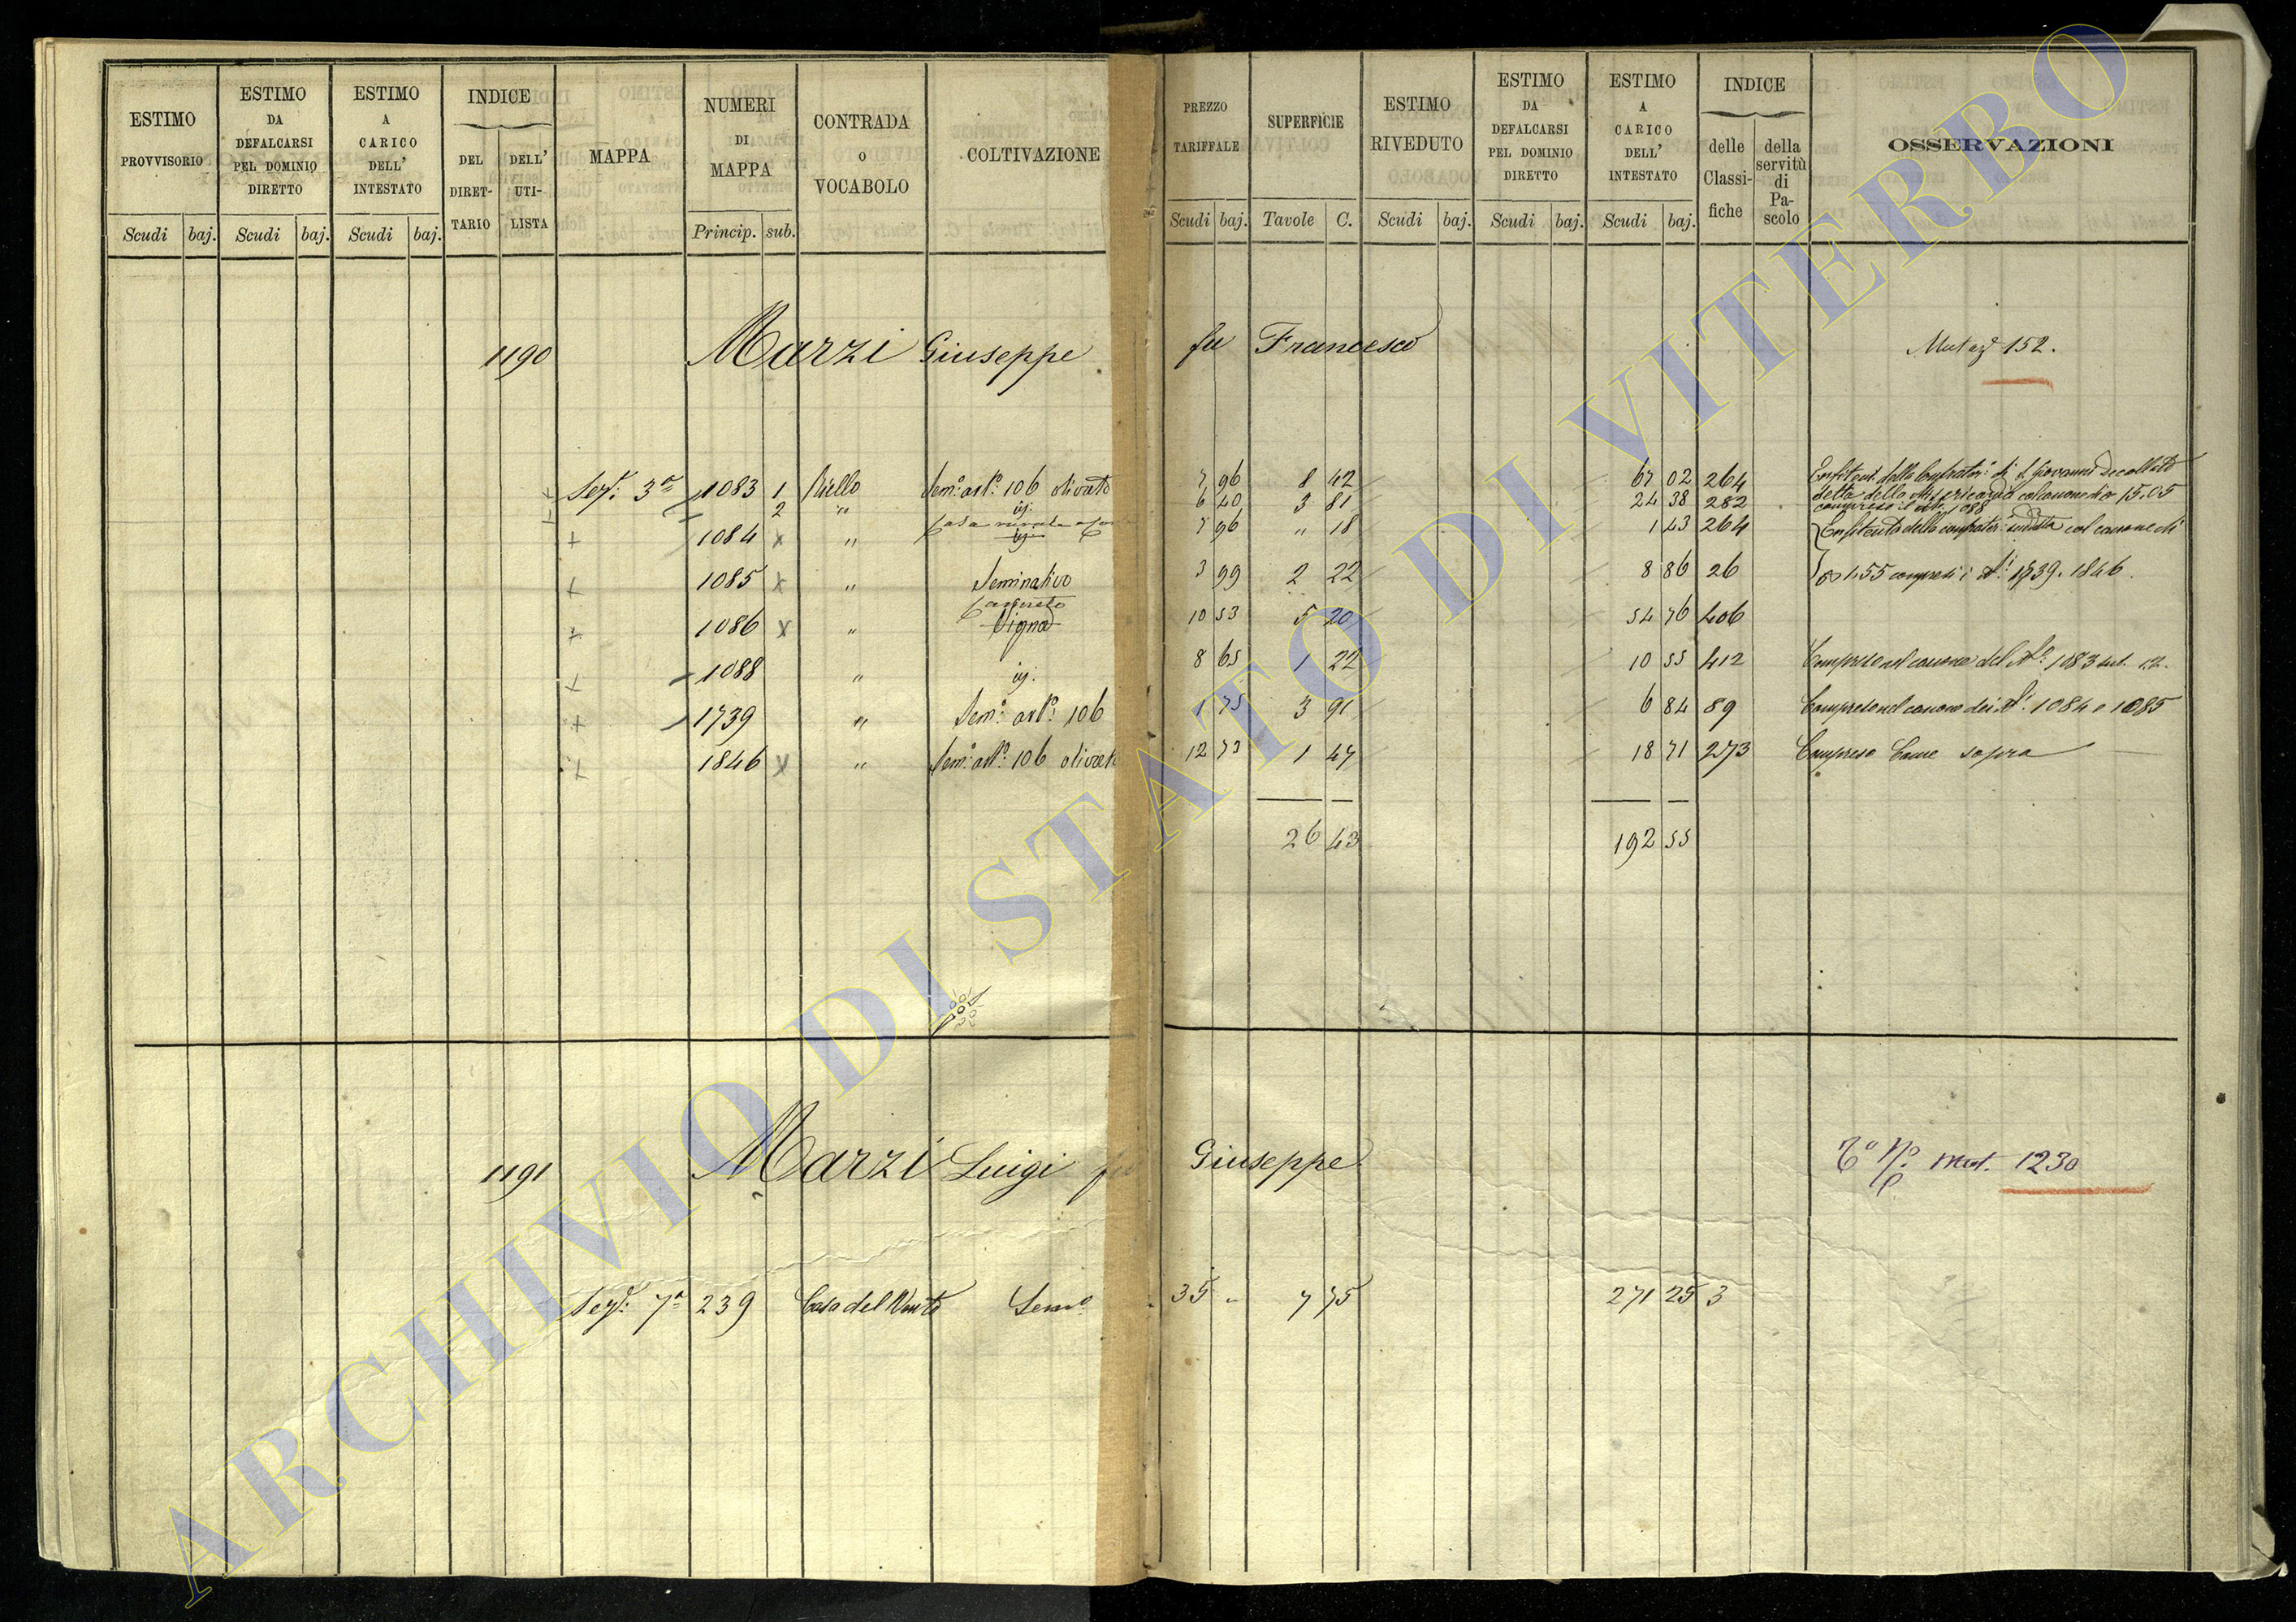 ESTIMO PROVVISORIO
Scudi baj.
ESTIMO DA DEFALCARSI PEL DOMINIO DIRETTO
Scudi baj.
ESTIMO A CARICO DELL' INTESTATO
Scudi baj.
INDICE
DEL DIRET- TARIO
DELL' UTI- LISTA
MAPPA
NUMERI DI MAPPA
Princip. sub.
CONTRADA O VOCABOLO
COLTIVAZIONE
PREZZO TARIFFALE
Scudi baj.
SUPERFICIE
Tavole C.
ESTIMO RIVEDUTO
Scudi baj.
ESTIMO DA DEFALCARSI PEL DOMINIO DIRETTO
Scudi baj.
ESTIMO A CARICO DELL' INTESTATO
Scudi baj.
INDICE
delle Classi- fiche
della servitù di Pa- scolo
OSSERVAZIONI
1190 Marzi Giuseppe fu Francesco Mutaz 152.
Sez: 3a 1083 1 Riello Sem.o art.o 106 olivato 7 96 8 42 67 02 264
2 " ig. 6 40 3 81 24 38 282
Casa rurale
1084 x " ig. 7 96 " 18 1 43 264
1085 x " Seminativo 3 99 2 22 8 86 26
Canneto
1086 x " Vigna 10 53 5 20 54 76 406
1088 " ig. 8 65 1 22 10 55 412 Compreso nel canone del N.o 1083 sub. 1.2.
1739 " Sem.o art.o 106 1 75 3 91 6 84 89 Compreso nel canone dei N.i 1084 e 1085
1846 x " Sem.o art.o 106 olivato 12 73 1 47 18 71 273 Compreso Come sopra
26 43 192 55
1191 Marzi Luigi fu Giuseppe Mut. 1230
Sez: 7a 239 Casa del Vento Sem.o 35 " 7 75 271 25 3
ARCHIVIO DI STATO DI VITERBO